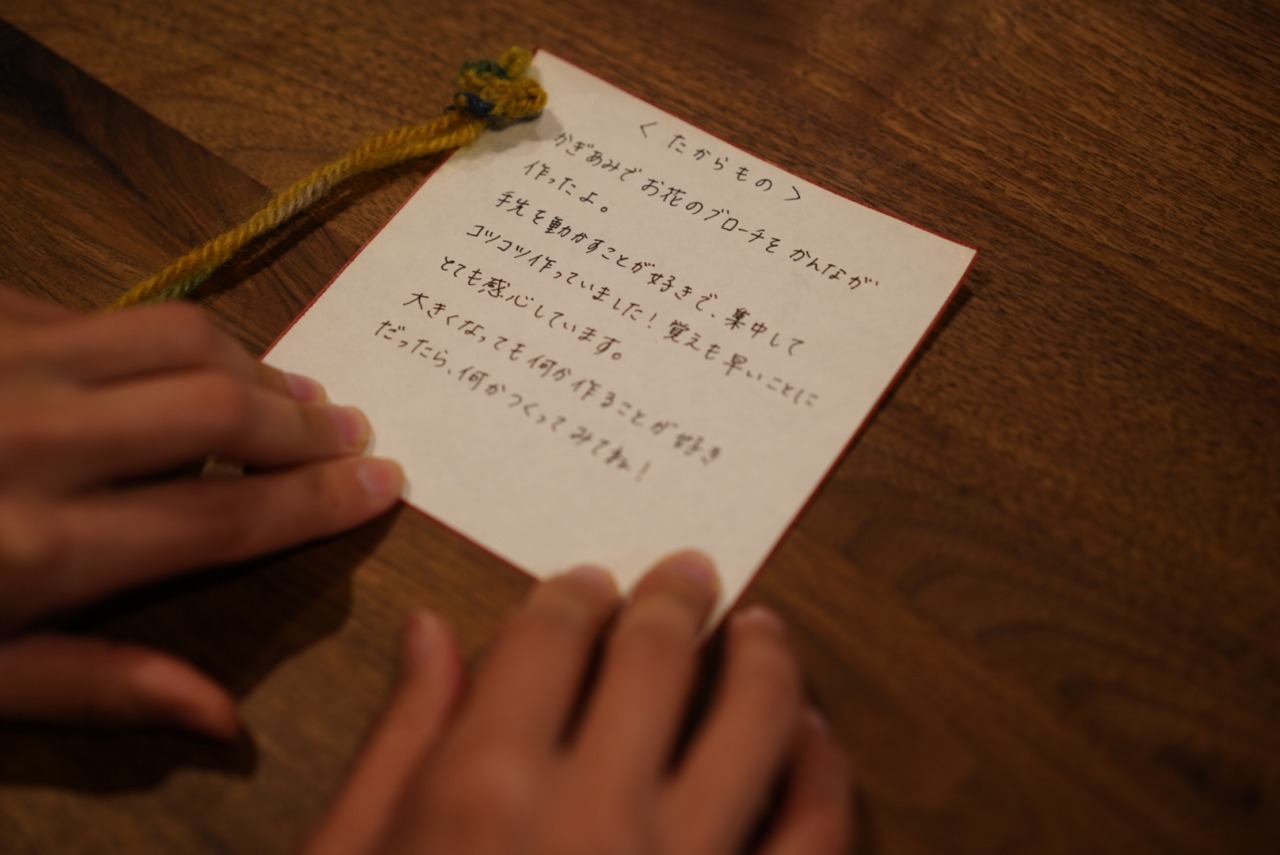 < たからもの >
かぎあみでお花のブローチを かんなが
作ったよ。
手先を動かすことが好きで、集中して
コツコツ作っていました！覚えも早いことに
とても感心しています。
大きくなっても何か作ることが好き
だったら、何かつくってみてね！